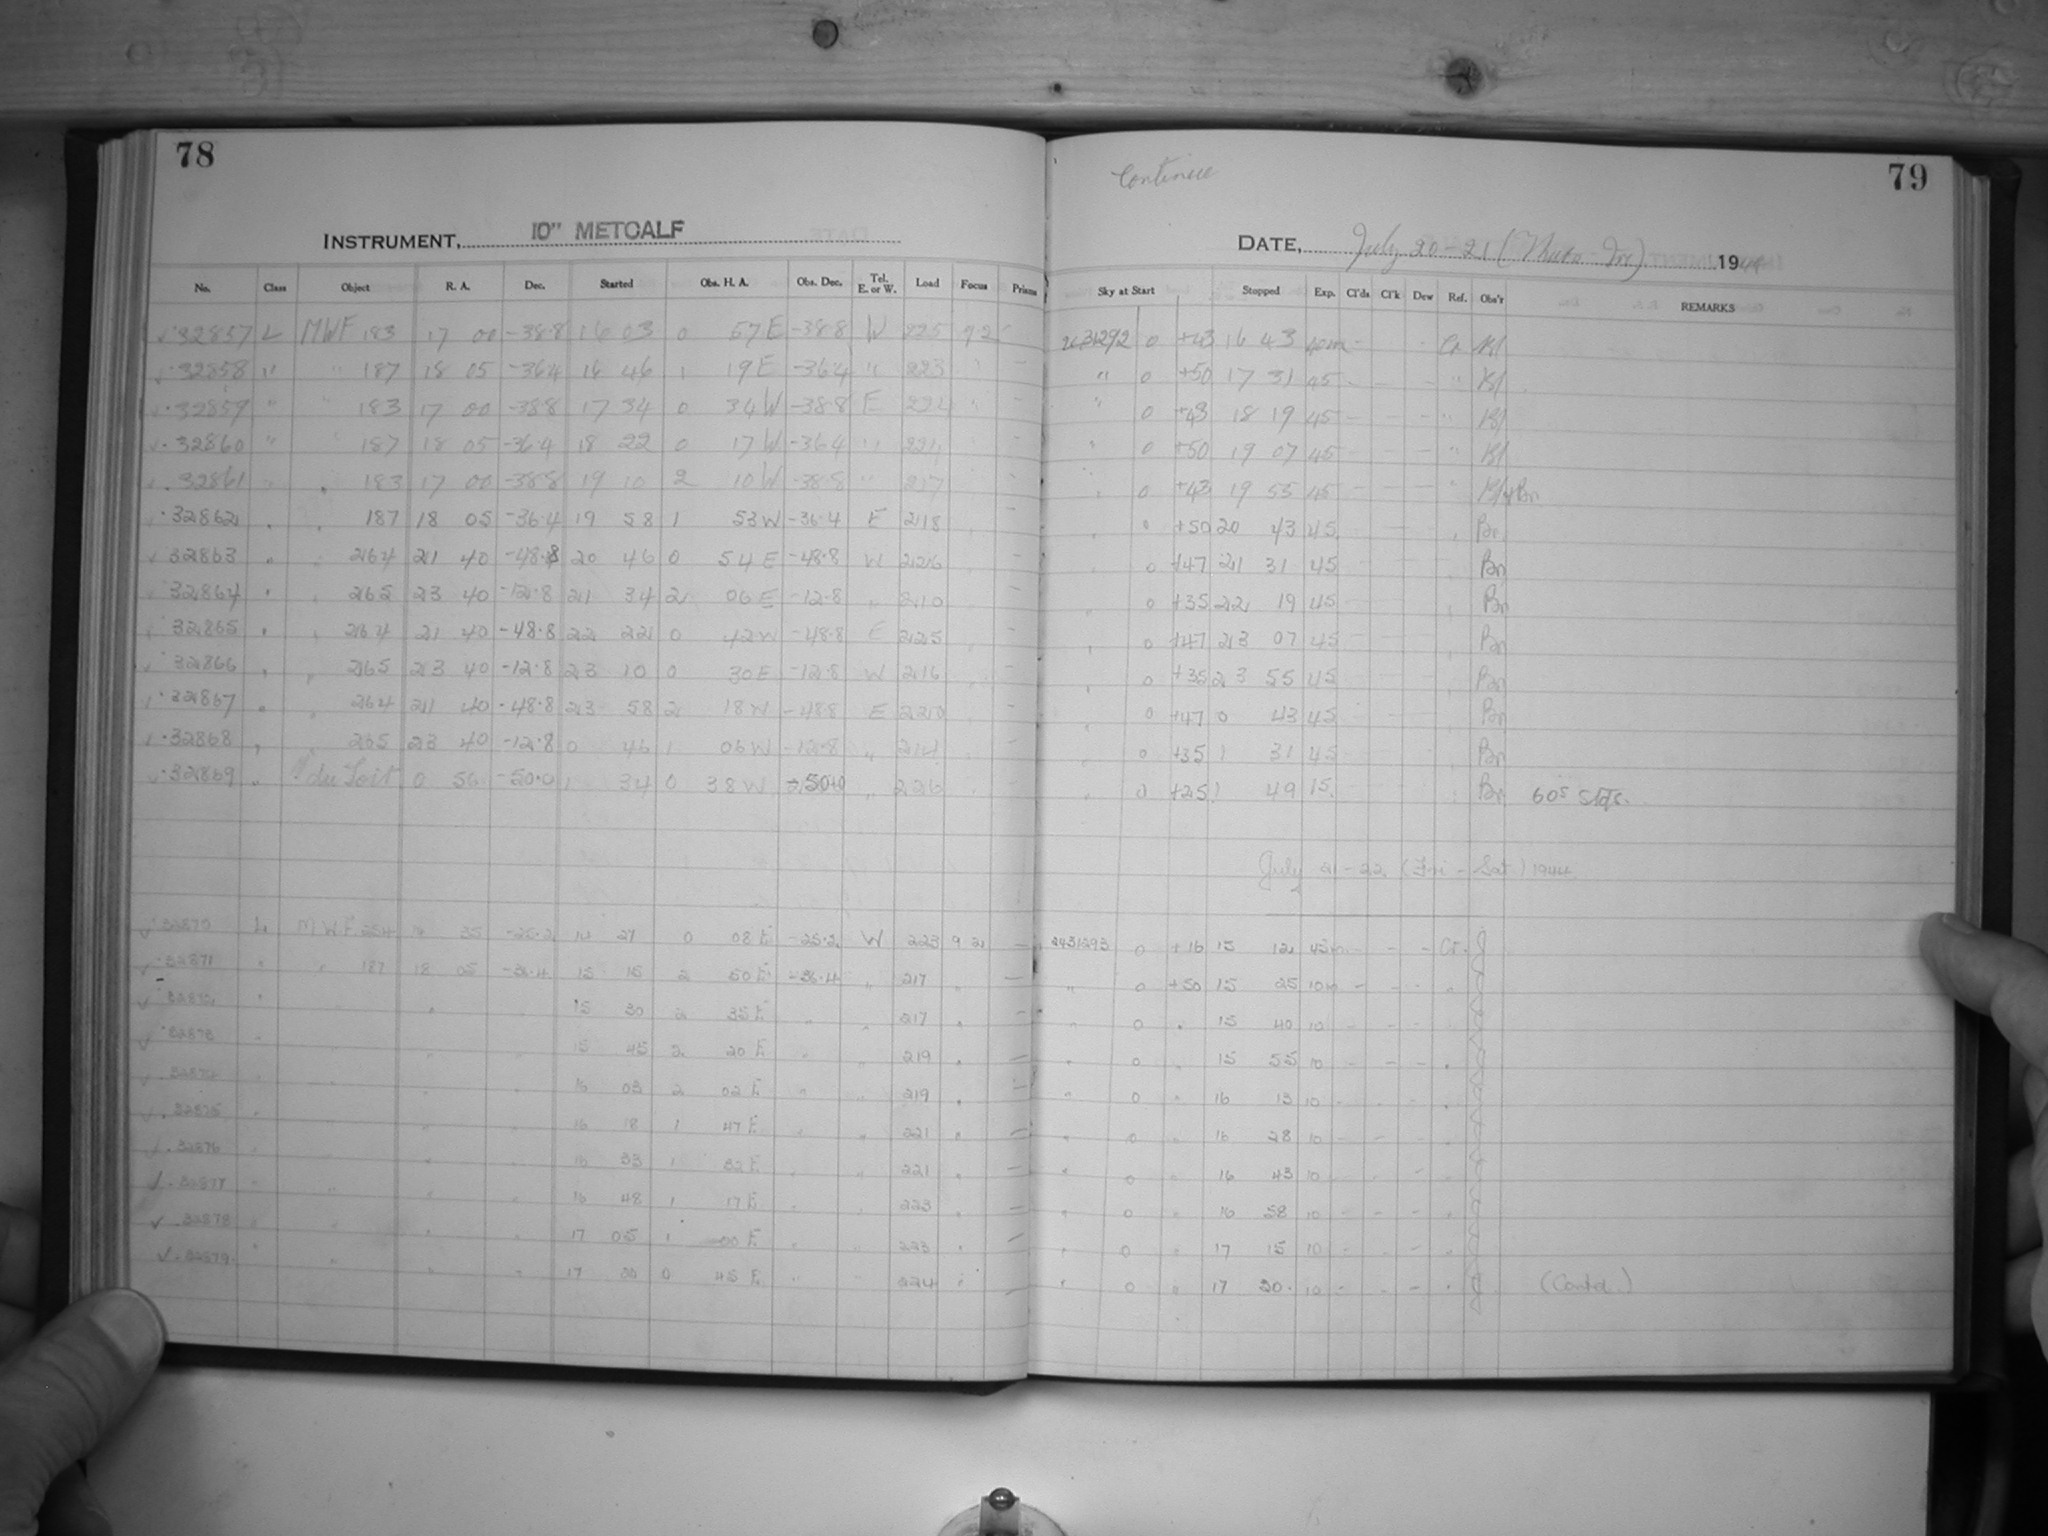 78
INSTRUMENT, 10" METCALF
No. Class Object R. A. Dec. Started Obs. H. A. Obs. Dec. Tel. E. or W. Load Focus Prisms
32857 L MWF 183 17 00 -38.8 16 03 0 57 E -38.8 W 225 92
32858 " " 187 18 05 -36.4 16 46 1 19 E -36.4 " 223 " -
32859 " " 183 17 00 -38.8 17 34 0 34 W -38.8 E 224 " -
32860 " " 187 18 05 -36.4 18 22 0 17 W -36.4 " 224 -
32861 " " 183 17 00 -38.8 19 10 2 10 W -38.8 " 217 -
32862 " " 187 18 05 -36.4 19 58 1 53 W -36.4 E 218 -
32863 " " 264 21 40 -48.8 20 46 0 54 E -48.8 W 226 -
32864 " " 265 23 40 -12.8 21 34 2 06 E -12.8 " 210 -
32865 " " 264 21 40 -48.8 22 22 0 42 W -48.8 E 225 -
32866 " " 265 23 40 -12.8 23 10 0 30 E -12.8 W 216 -
32867 " " 264 21 40 -48.8 23 58 2 18 W -48.8 E 220 -
32868 " " 265 23 40 -12.8 0 46 1 06 W -12.8 " 214 -
32869 " du Toit 0 56 -50.0 1 34 0 38 W " 226 -
32870 L MWF 254 14 35 -25.2 14 27 0 08 E -25.2 W 223 92 -
32871 " " 187 18 05 -36.4 15 15 2 50 E -36.4 " 217 " -
32872 " " " 15 30 2 35 E " " 217 " -
32873 " " " 15 45 2 20 E " " 219 " -
32874 " " " 16 03 2 02 E " " 219 " -
32875 " " " 16 18 1 47 E " " 221 " -
32876 " " " 16 33 1 32 E " " 221 " -
32877 " " " 16 48 1 17 E " " 223 " -
32878 " " " 17 05 1 00 E " " 223 " -
32879 " " " 17 20 0 45 E " " 224 " -
Continue
79
DATE, July 20-21 (Thurs-Fri) 1944
Sky at Start Stopped Exp. Cl'ds Cl'k Dew Ref. Obs'r REMARKS
2431292 0 +43 16 43 40m - - Cr Bl
" 0 +50 17 31 45 - - - " Bl
" 0 +43 18 19 45 - - - " Bl
" 0 +50 19 07 45 - - - " Bl
" 0 +43 19 55 45 - - - " Bl & Bn
" 0 +50 20 43 45 Bn
" 0 +47 21 31 45 Bn
" 0 +35 22 19 45 Bn
" 0 +47 23 07 45 Bn
" 0 +35 23 55 45 Bn
" 0 +47 0 43 45 Bn
" 0 +35 1 31 45 Bn
" 0 +25 1 49 15 Bn 60s
July 21-22 (Fri - Sat) 1944
2431293 0 +16 15 12 45m - - - Cr. J
" 0 +50 15 25 10m - - - "
" 0 " 15 40 10 - - - "
" 0 " 15 55 10 - - - "
" 0 " 16 13 10 - - - "
" 0 " 16 28 10 - - - "
" 0 " 16 43 10 - - - "
" 0 " 16 58 10 - - - "
" 0 " 17 15 10 - - - "
" 0 " 17 30 10 - - - " J (Contd.)